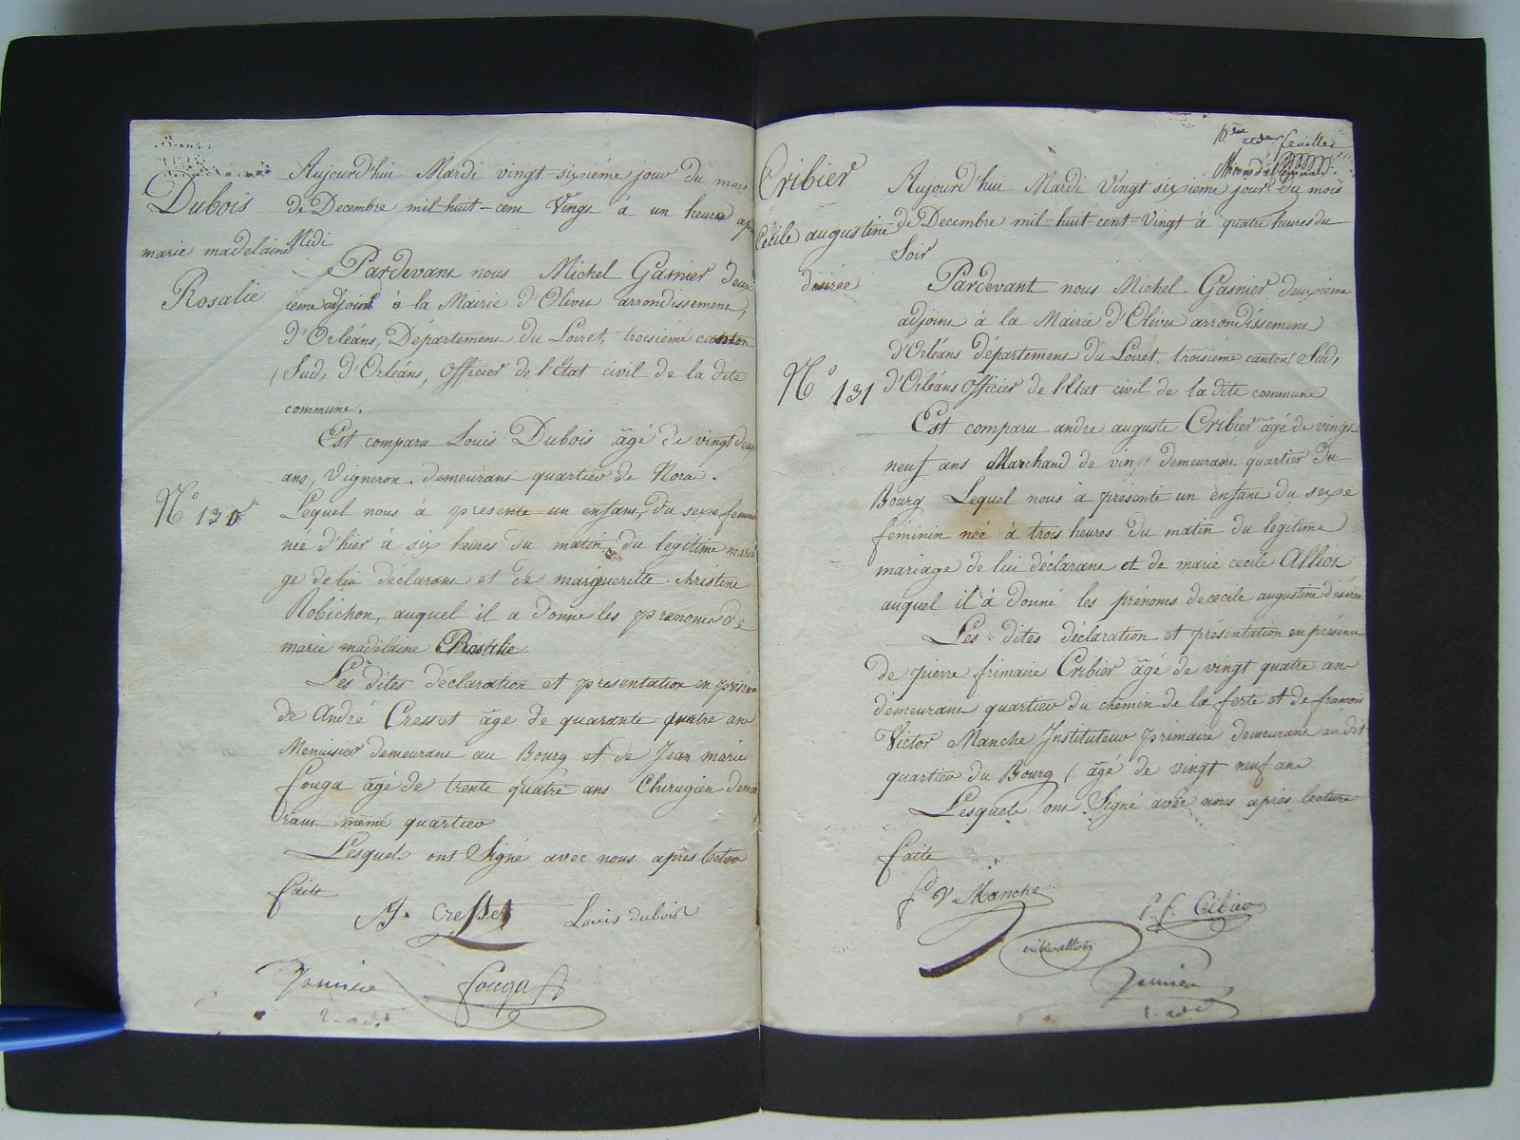 Dubois
marie madelaine
Rosalie
N° 130
Aujourd'hui Mardi vingt sixième jour du mois
de Decembre mil-huit-cent Vingt à un heure après
Midi
Pardevant nous Michel Gasnier deux
ieme adjoint à la Mairie d'Olivet arrondissement,
d'Orléans, Département du Loiret, troisieme canton
Sud, d'Orléans, officier de l'État civil de la dite
commune.
Est comparu Louis Dubois âgé de vingt deux
ans, Vigneron demeurant quartier de
Lequel nous à presenté un enfant, du sexe feminin
née d'hier à six heures du matin du legitime maria
ge de lui déclarant et de margueritte christine
Robichon, auquel il a donné les prenoms de
marie madelaine Rosalie
Les dites déclaration et présentation en présence
de André Cresset âge de quarante quatre ans
Menuisier demeurant au Bourg et de Jean marie
fouga âgé de trente quatre ans Chirugien demeu
rant même quartier
Lesquels ont Signé avec nous après lectur
faite
A. Cresset Louis dubois
fouga
Cribier
Cécile augustine
desirée
N° 131
feuillet
Aujourd'hui Mardi Vingt sixième jour du mois
de Decembre mil-huit cent-Vingt à quatre heures du
Soir
Pardevant nous Michel Gasnier deuxieme
adjoint à la Mairie d'Olivet arrondissement
d'Orléans département du Loiret, troisieme canton Sud,
d'Orléans officier de l'Etat civil de la dite commune
Est comparu andre auguste Cribier âgé de vingt
neuf ans Marchand de vin demeurant quartier du
Bourg Lequel nous à présenté un enfant du sexe
féminin née à trois heures du matin du legitime
mariage de lui déclarant et de marie cecile
auquel il à donné les prénoms de cecile augustine désirée
Les dites déclaration et présentation en présence
de pierre frimaire Cribier âgé de vingt quatre ans
demeurant quartier du chemin de la ferte et de francois
Victor Manche Instituteur primaire demeurant au dit
quartier du Bourg âgé de vingt neuf ans
Lesquels ont Signé avec nous après lecture
faite
f V Manche
P. f. Cribier